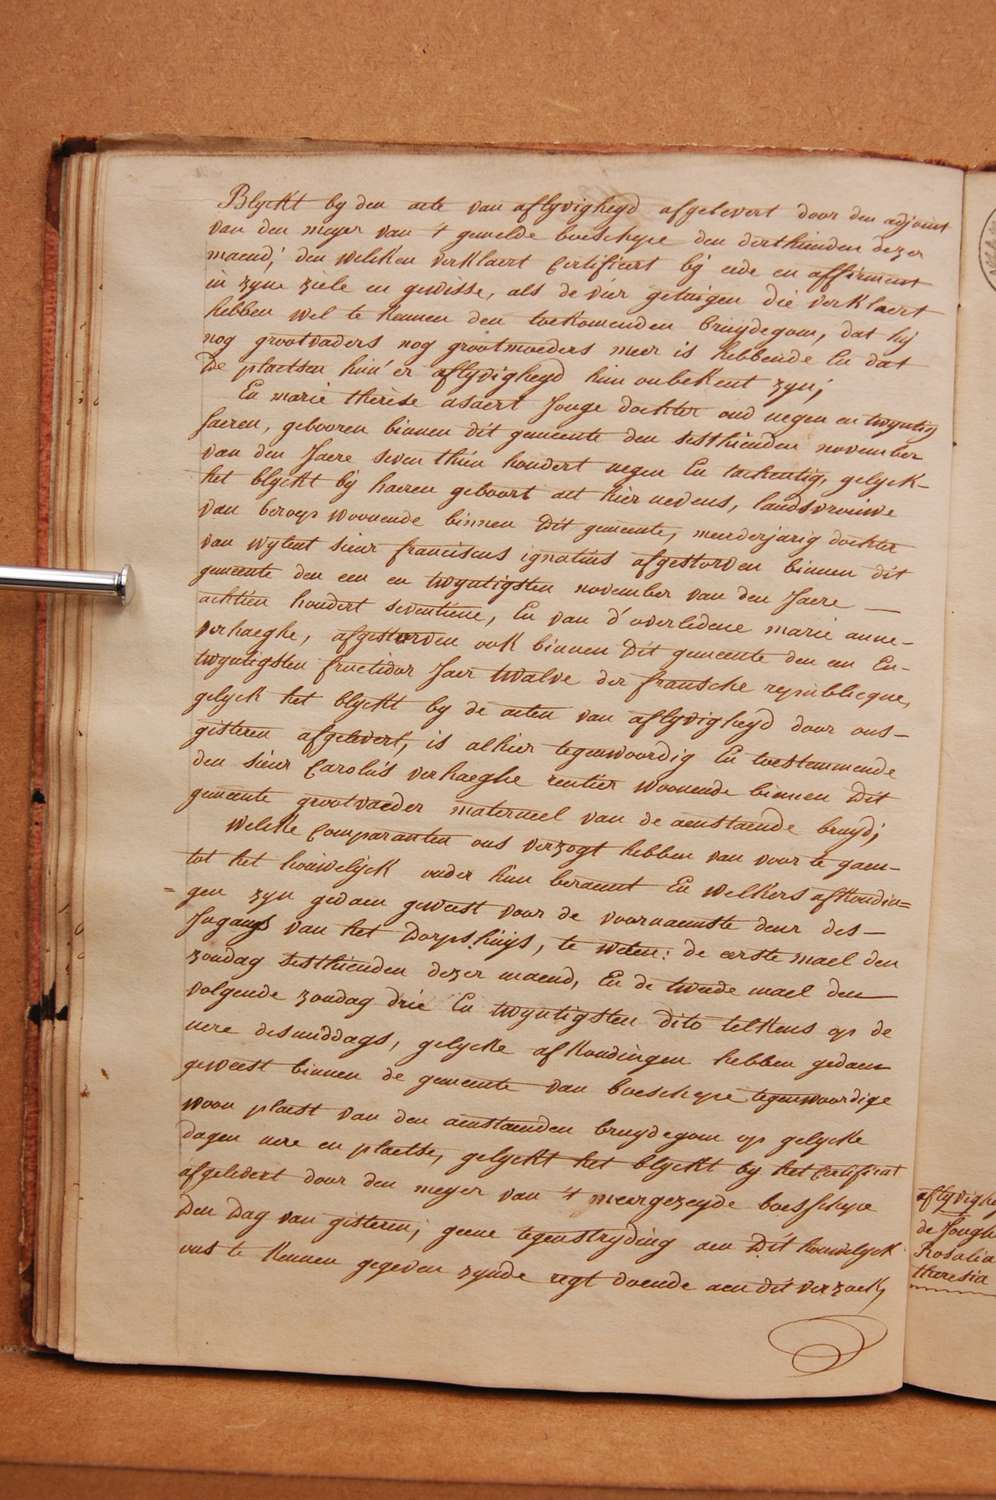 Blyckt by den acte van aflyvigheyd afgelevert door den adjoint
van den meyer van 't gemelde boeschepe den derthienden dezer
maend; den welcken verklaert Certificert bij eede en affirmeert
in zyne ziele en gewisse, als de vier getuigen die verklaert
hebben wel te kennen den toekomenden bruydegom, dat hy
nog grootvaders nog grootmoeders meer is hebbende En dat
De plaetsen hun' er aflyvigheyd hun onbekent zyn;
En marie thérèse asaert Jonge dochter oud negen en twyntig
Jaeren, gebooren binnen dit gemeente den sesthienden november
van den Jaere seventhien hondert negen En tachentig, gelyck-
het blyckt by haeren geboort act hier nevens, landsvrouwe
van beroep woonende binnen dit gemeente, meerderjarig dochter
van wylent sieur franciscus ignatius afgestorven binnen dit
gemeente den een en twyntigsten november van den Jaere —
achtien hondert seventiene, En van d'overledene marie anne-
verhaeghe, afgestorven ook binnen Dit gemeente den een En-
twyntigsten fructidor Jaer twalve der fransche republicque,
gelyck het blyckt by de acten van aflyvigheyd door ons-
gisteren afgelevert, is alhier tegenwoordig En toestemmende
den sieur Carolus verhaeghe rentier woonende binnen dit
gemeente grootvaeder materneel van de aenstaende bruyd;
Welcke Comparanten ons verzogt hebben van voor te gaen-
tot het houwelyck onder hun beraemt En welkers afkondin=
gen zyn gedaen geweest voor de voornaemste deur des-
Ingangs van het Dorps huys, te weten: de eerste mael den
zondag sesthienden dezer maend, En de tweede mael den
volgende zondag drie En twyntigsten dito telkens op de
uere desmiddags, gelycke afkondingen hebben gedaen
geweest binnen de gemeente van boeschepe tegenwoordige
woon plaets van den aenstaenden bruydegom op gelycke
dagen uere en plaetse, gelyckt het blyckt by het Certificat
afgelevert door den meyer van 't meergezeyde boesschepe
Den Dag van gisteren; geene tegenstryding aen Dit houwelyck
ons te kennen gegeven zynde regt doende aen dit verzoek,
aflyvighe
de Jongh
Rosalia
theresia